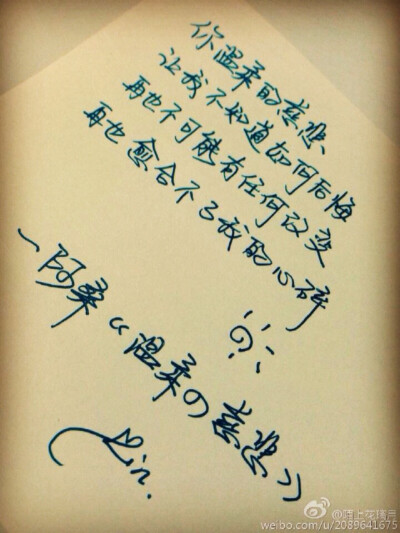 你温柔的慈悲
让我不知道如何后悔
再也不可能有任何改变
再也愈合不了我的心碎
~阿桑《温柔の慈悲》
weibo.com/u/2089641675